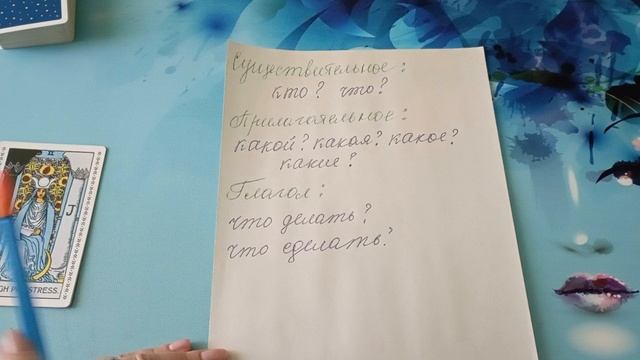 Существительное:
кто? что?
Прилагательное:
какой? какая? какое?
какие?
Глагол:
что делать?
что сделать?
J
GH P STRESS.